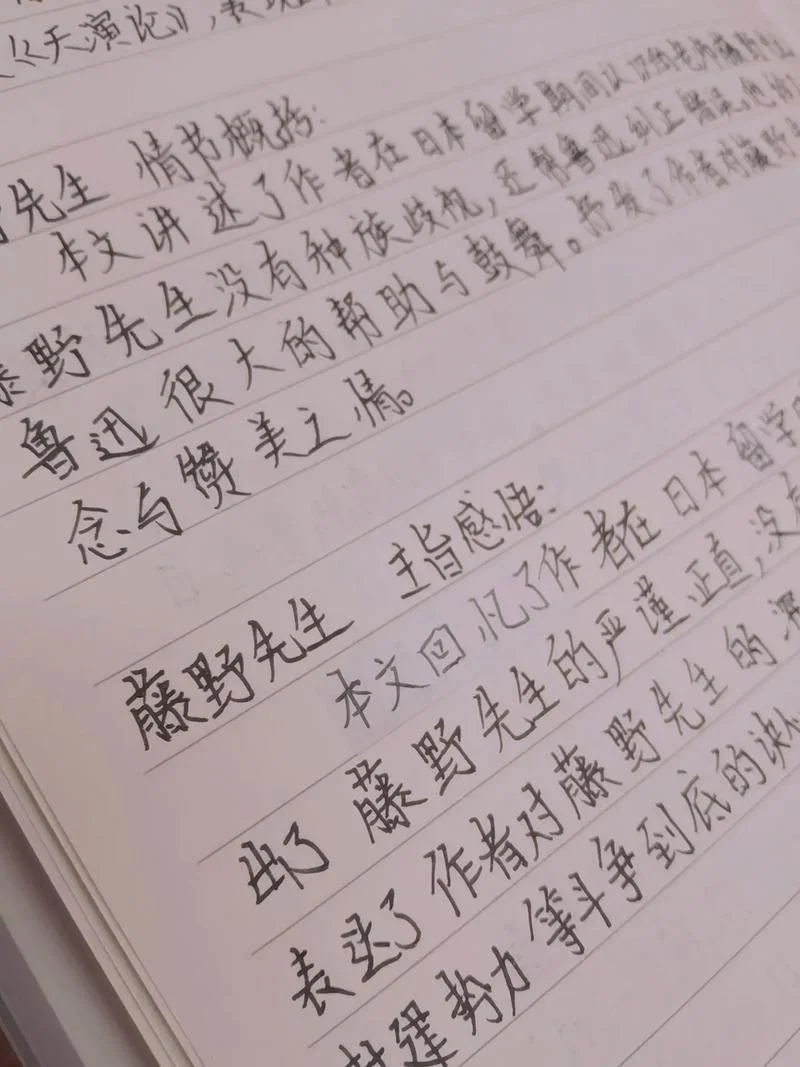 《天演论》,表现
先生 情节概括:
本文讲述了作者在日本留学期间认识的老师藤野先生
藤野先生没有种族歧视,还帮鲁迅纠正错误。他给
鲁迅很大的帮助与鼓舞。抒发了作者对藤野
念与赞美之情。
藤野先生 主旨感悟:
本文回忆了作者在日本留学
出了藤野先生的严谨、正直,没有
表达了作者对藤野先生的深
封建势力等斗争到底的决